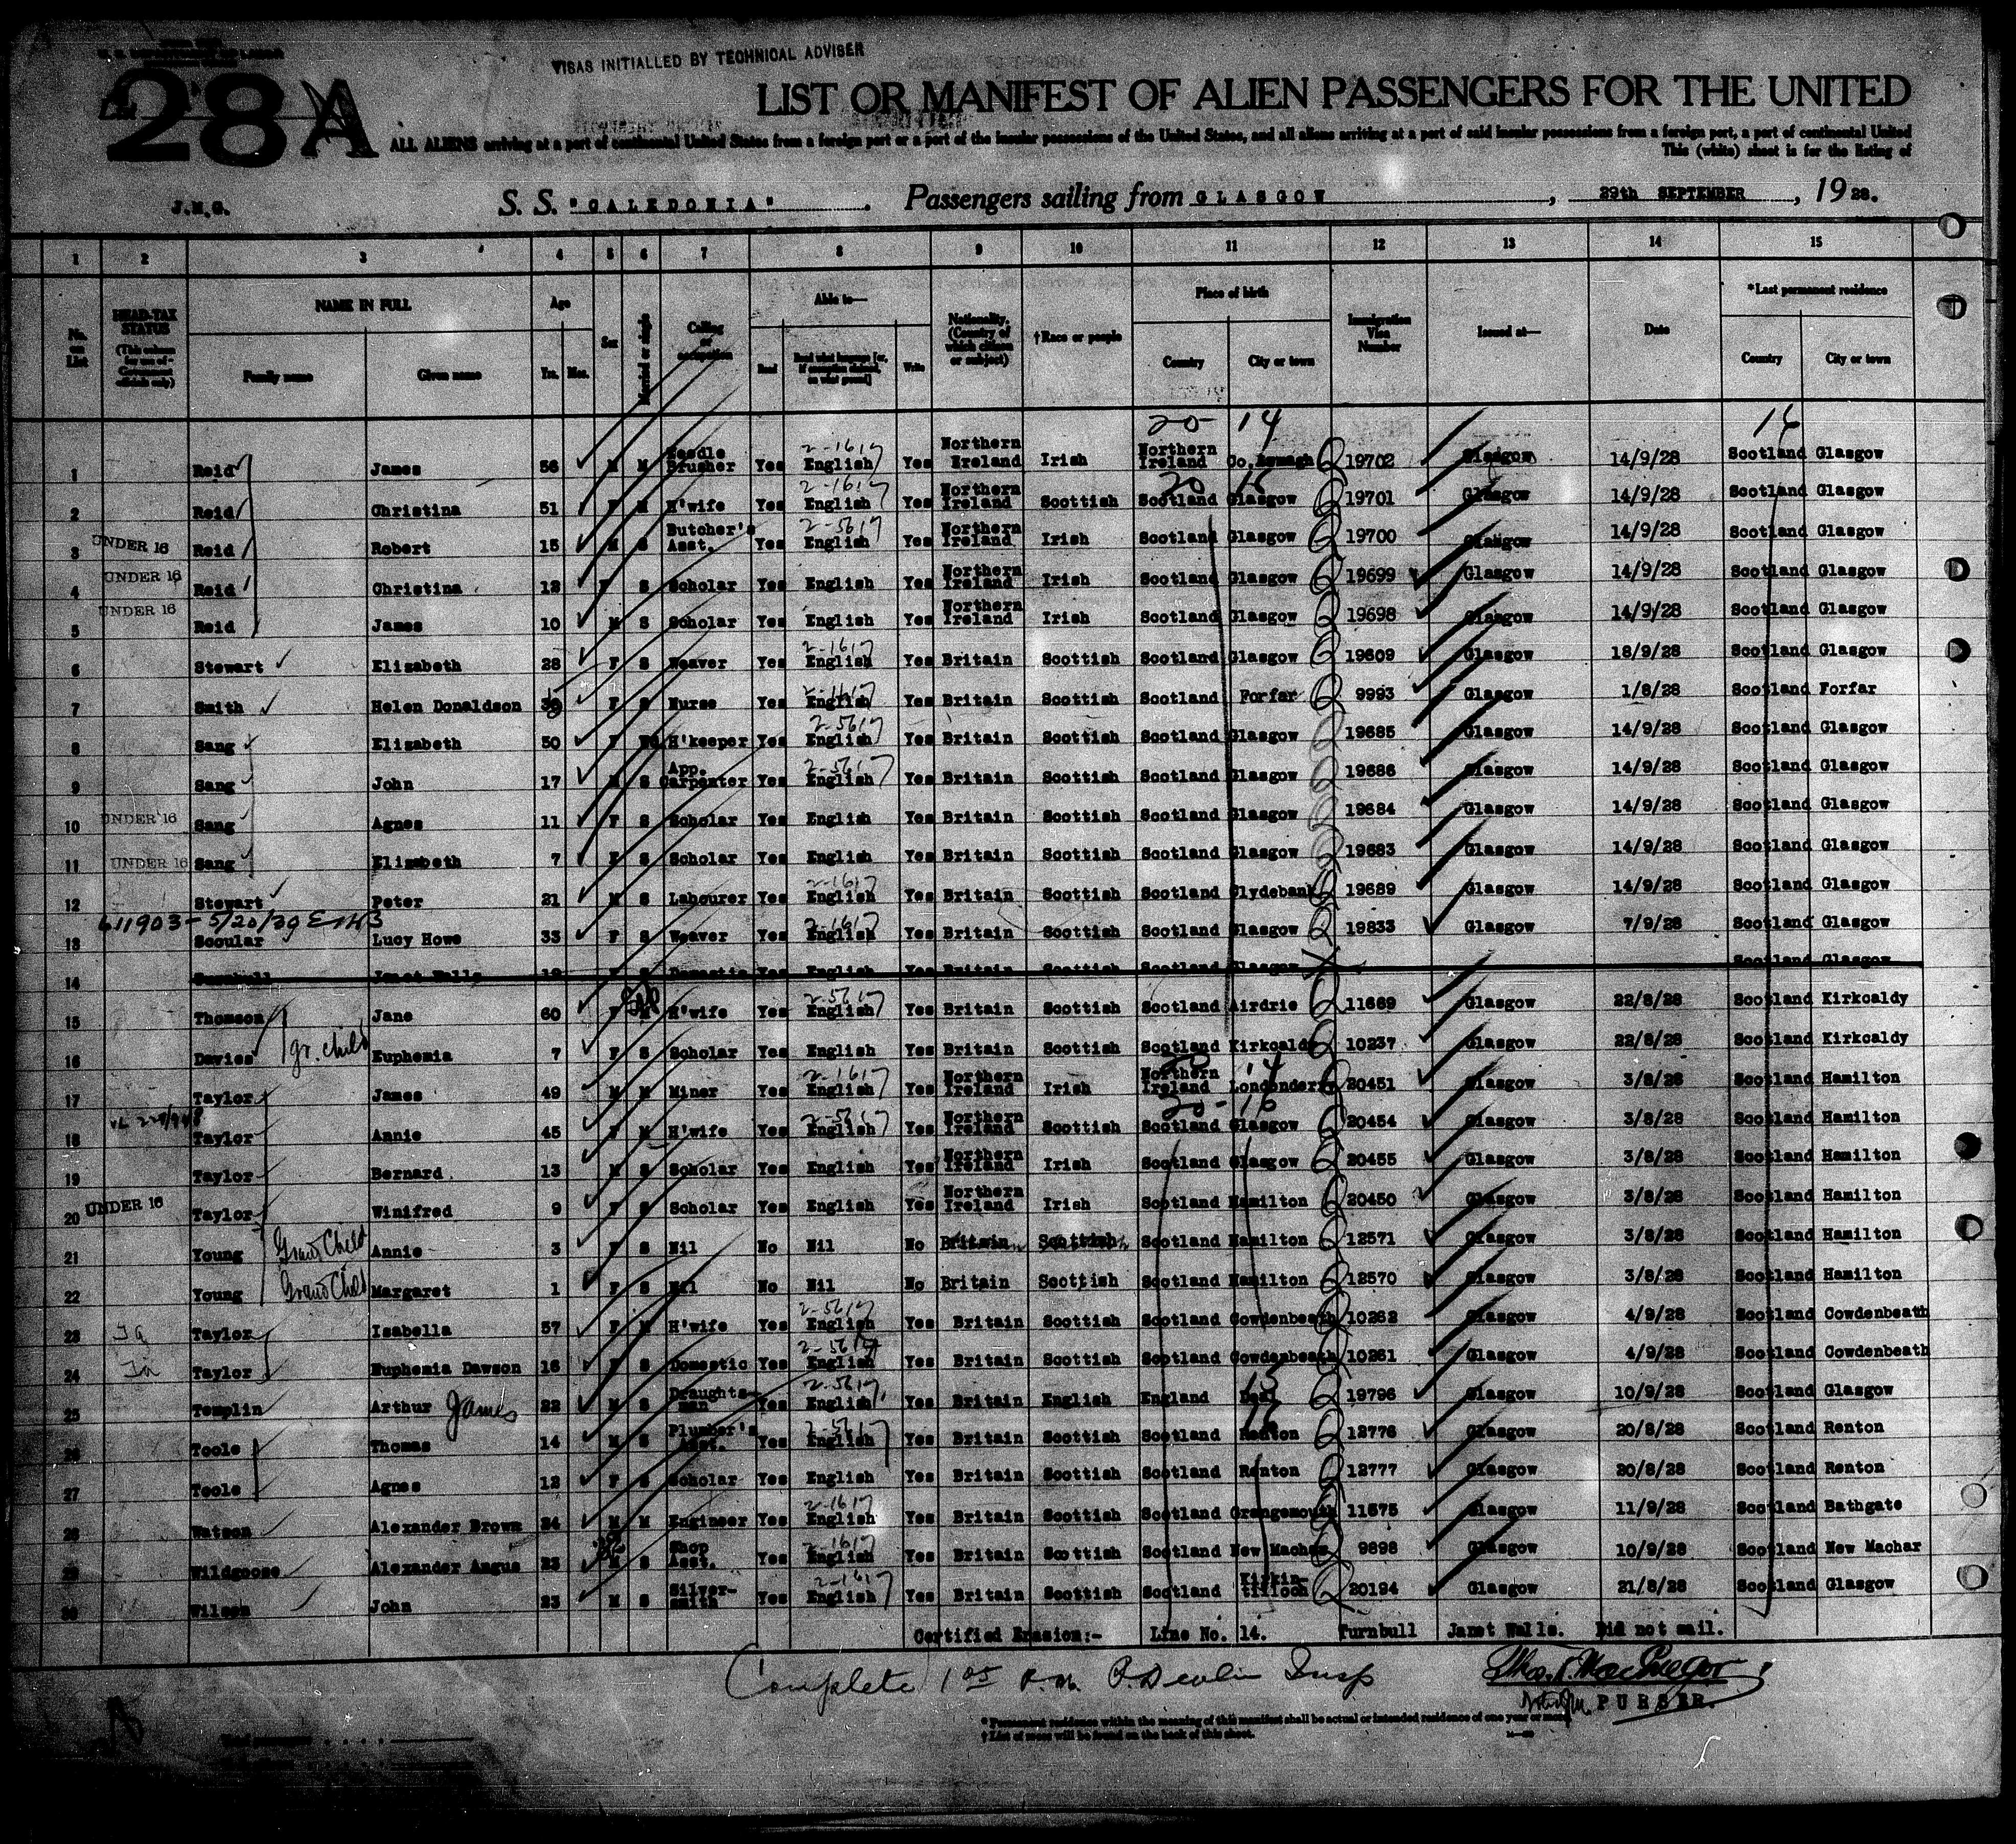 VISAS INITIALLED BY TECHNICAL ADVISER
28 A
LIST OR MANIFEST OF ALIEN PASSENGERS FOR THE UNITED
ALL ALIENS arriving at a port of continental United States from a foreign port or a port of the insular possessions of the United States, and all aliens arriving at a port of said insular possessions from a foreign port, a port of continental United
This (white) sheet is for the listing of
J.M.G. S. S. "CALEDONIA" Passengers sailing from GLASGOW, 29th SEPTEMBER, 1928.
1 2 3 4 5 6 7 8 9 10 11 12 13 14 15
No. on List HEAD-TAX STATUS (This column for use of Government officials only) NAME IN FULL Family name Given name Age Yrs. Mos. Sex Married or single Calling or occupation Able to— Read Read what language [or, if exemption claimed, on what ground] Write Nationality. (Country of which citizen or subject) †Race or people Place of birth Country City or town Immigration Visa Number Issued at— Date *Last permanent residence Country City or town
20 14 16
1 Reid James 56 M M Needle Brusher Yes English 2-1617 Yes Northern Ireland Irish Northern Ireland Co. 19702 Glasgow 14/9/28 Scotland Glasgow
2 Reid Christina 51 F M H'wife Yes English 2-1617 Yes Northern Ireland Scottish Scotland Glasgow 19701 Glasgow 14/9/28 Scotland Glasgow
3 UNDER 16 Reid Robert 15 M S Butcher's Asst. Yes English 2-5617 Yes Northern Ireland Irish Scotland Glasgow 19700 Glasgow 14/9/28 Scotland Glasgow
4 UNDER 16 Reid Christina 12 F S Scholar Yes English Yes Northern Ireland Irish Scotland Glasgow 19699 Glasgow 14/9/28 Scotland Glasgow
5 UNDER 16 Reid James 10 M S Scholar Yes English Yes Northern Ireland Irish Scotland Glasgow 19698 Glasgow 14/9/28 Scotland Glasgow
6 Stewart Elizabeth 28 F S Weaver Yes English 2-1617 Yes Britain Scottish Scotland Glasgow 19609 Glasgow 18/9/28 Scotland Glasgow
7 Smith Helen Donaldson F S Nurse Yes English 2-1617 Yes Britain Scottish Scotland Forfar 9993 Glasgow 1/8/28 Scotland Forfar
8 Sang Elizabeth 50 F Wd. H'keeper Yes English 2-5617 Yes Britain Scottish Scotland Glasgow 19685 Glasgow 14/9/28 Scotland Glasgow
9 Sang John 17 M S App. Carpenter Yes English 2-5617 Yes Britain Scottish Scotland Glasgow 19686 Glasgow 14/9/28 Scotland Glasgow
10 UNDER 16 Sang Agnes 11 F S Scholar Yes English Yes Britain Scottish Scotland Glasgow 19684 Glasgow 14/9/28 Scotland Glasgow
11 UNDER 16 Sang Elizabeth 7 F S Scholar Yes English Yes Britain Scottish Scotland Glasgow 19683 Glasgow 14/9/28 Scotland Glasgow
12 Stewart Peter 21 M S Labourer Yes English 2-1617 Yes Britain Scottish Scotland Clydebank 19689 Glasgow 14/9/28 Scotland Glasgow
611903 - 5/20/39
13 Scoular Lucy Howe 33 F S Weaver Yes English 2-1617 Yes Britain Scottish Scotland Glasgow 19833 Glasgow 7/9/28 Scotland Glasgow
14 Turnbull Janet Walls F S Domestic Yes English Yes Britain Scottish Scotland Glasgow Scotland Glasgow
15 Thomson Jane 60 F H'wife Yes English 2-5617 Yes Britain Scottish Scotland Airdrie 11669 Glasgow 22/8/28 Scotland Kirkcaldy
16 Davies gr. child Euphemia 7 F S Scholar Yes English Yes Britain Scottish Scotland Kirkcaldy 10237 Glasgow 22/8/28 Scotland Kirkcaldy
17 Taylor James 49 M M Miner Yes English 2-1617 Yes Northern Ireland Irish Northern Ireland Londonderry 20451 Glasgow 3/8/28 Scotland Hamilton
18 Taylor Annie 45 F M H'wife Yes English 2-5617 Yes Northern Ireland Scottish Scotland Glasgow 20454 Glasgow 3/8/28 Scotland Hamilton
19 Taylor Bernard 13 M S Scholar Yes English Yes Northern Ireland Irish Scotland Glasgow 20455 Glasgow 3/8/28 Scotland Hamilton
20 UNDER 16 Taylor Winifred 9 F S Scholar Yes English Yes Northern Ireland Irish Scotland Hamilton 20450 Glasgow 3/8/28 Scotland Hamilton
21 Young Grand Child Annie 3 F S Nil No Nil No Britain Scottish Scotland Hamilton 12571 Glasgow 3/8/28 Scotland Hamilton
22 Young Grand Child Margaret 1 F S Nil No Nil No Britain Scottish Scotland Hamilton 12570 Glasgow 3/8/28 Scotland Hamilton
23 Taylor Isabella 57 F M H'wife Yes English 2-5617 Yes Britain Scottish Scotland Cowdenbeath 10262 Glasgow 4/9/28 Scotland Cowdenbeath
24 Taylor Euphemia Dawson 16 F S Domestic Yes English 2-5617 Yes Britain Scottish Scotland Cowdenbeath 10261 Glasgow 4/9/28 Scotland Cowdenbeath
25 Templin Arthur James 22 M S Draughtsman Yes English 2-5617 Yes Britain English England Deal 19796 Glasgow 10/9/28 Scotland Glasgow
26 Toole Thomas 14 M S Plumber's Asst. Yes English 2-5617 Yes Britain Scottish Scotland Renton 12776 Glasgow 20/8/28 Scotland Renton
27 Toole Agnes 12 F S Scholar Yes English Yes Britain Scottish Scotland Renton 12777 Glasgow 20/8/28 Scotland Renton
28 Watson Alexander Brown 24 M M Engineer Yes English 2-1617 Yes Britain Scottish Scotland Grangemouth 11575 Glasgow 11/9/28 Scotland Bathgate
29 Wildgoose Alexander Angus 23 M S Shop Asst. Yes English 2-1617 Yes Britain Scottish Scotland New Machar 9898 Glasgow 10/9/28 Scotland New Machar
30 Wilson John 23 M S Silversmith Yes English 2-1617 Yes Britain Scottish Scotland Kirkintilloch 20194 Glasgow 21/8/28 Scotland Glasgow
Certified Erasion:- Line No. 14. Turnbull Janet Walls. Did not sail.
Complete 1 05 P.M. P. Devlin Insp
Thos. T. MacGregor
PURSER.
* Permanent residence within the meaning of this manifest shall be actual or intended residence of one year or more.
† List of races will be found on the back of this sheet.